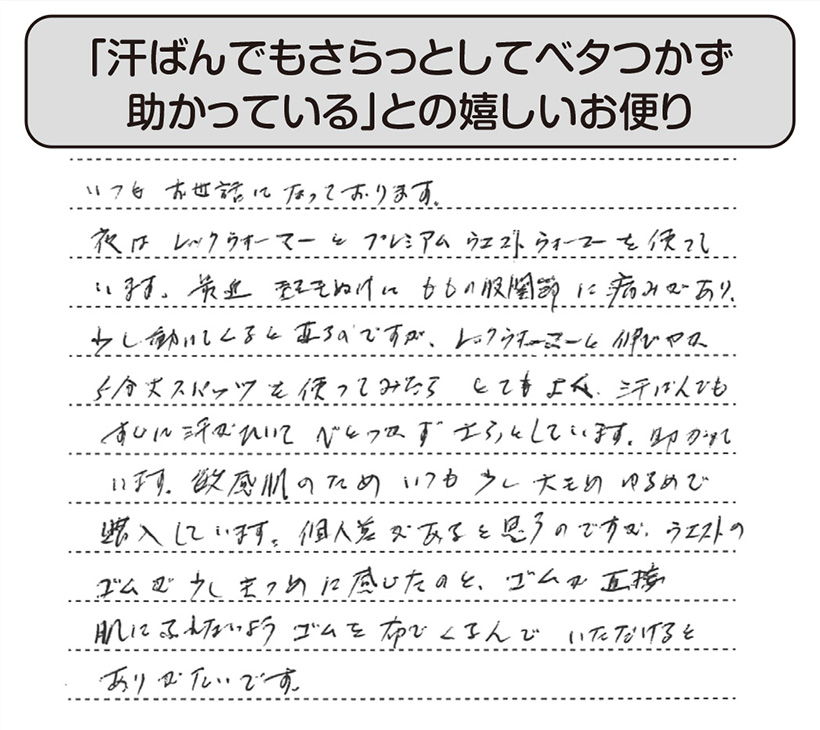 「汗ばんでもさらっとしてベタつかず
助かっている」との嬉しいお便り
いつも お世話に なっております。
夜は レッグウォーマーと プレミアム ウエストウォーマーを使って
います。最近 起きぬけに ももの股関節 に 痛みがあり、
少し動いてくると 直るのですが、レッグウォーマーと 伸びやか
5分丈スパッツを 使ってみたら とてもよく、汗ばんでも
すぐに汗がひいて べとつかず さらっとしています。助かって
います。敏感肌のため いつも 少し 大きめ ゆるめで
購入しています。個人差が あると思うのですが、ウエストの
ゴムが 少し きつめ に感じたのと、ゴムが 直接
肌に ふれないよう ゴムを 布で くるんで いただけると
ありがたいです。